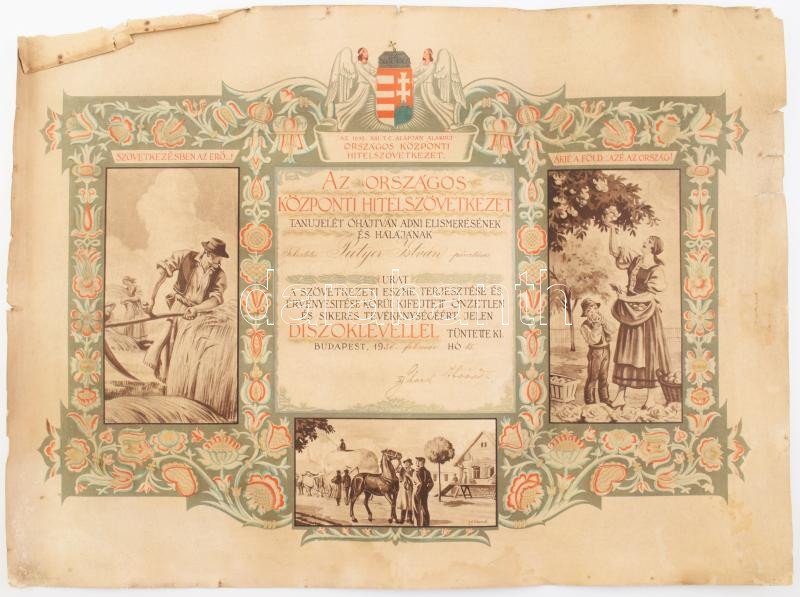 AZ 1898. XXIII. T.C. ALAPJÁN ALAKULT
ORSZÁGOS KÖZPONTI
HITELSZÖVETKEZET.
SZÖVETKEZÉSBEN AZ ERŐ...!
AKIÉ A FÖLD... AZÉ AZ ORSZÁG!
AZ ORSZÁGOS
KÖZPONTI HITELSZÖVETKEZET
TANUJELÉT ÓHAJTVÁN ADNI ELISMERÉSÉNEK
ÉS HÁLÁJÁNAK
István
URAT
A SZÖVETKEZETI ESZME TERJESZTÉSE ÉS
ÉRVÉNYESITÉSE KÖRÜL KIFEJTETT ÖNZETLEN
ÉS SIKERES TEVÉKENYSÉGÉÉRT JELEN
DISZOKLEVÉLLEL TÜNTETTE KI.
BUDAPEST, 19 február HÓ 15.
darabanth